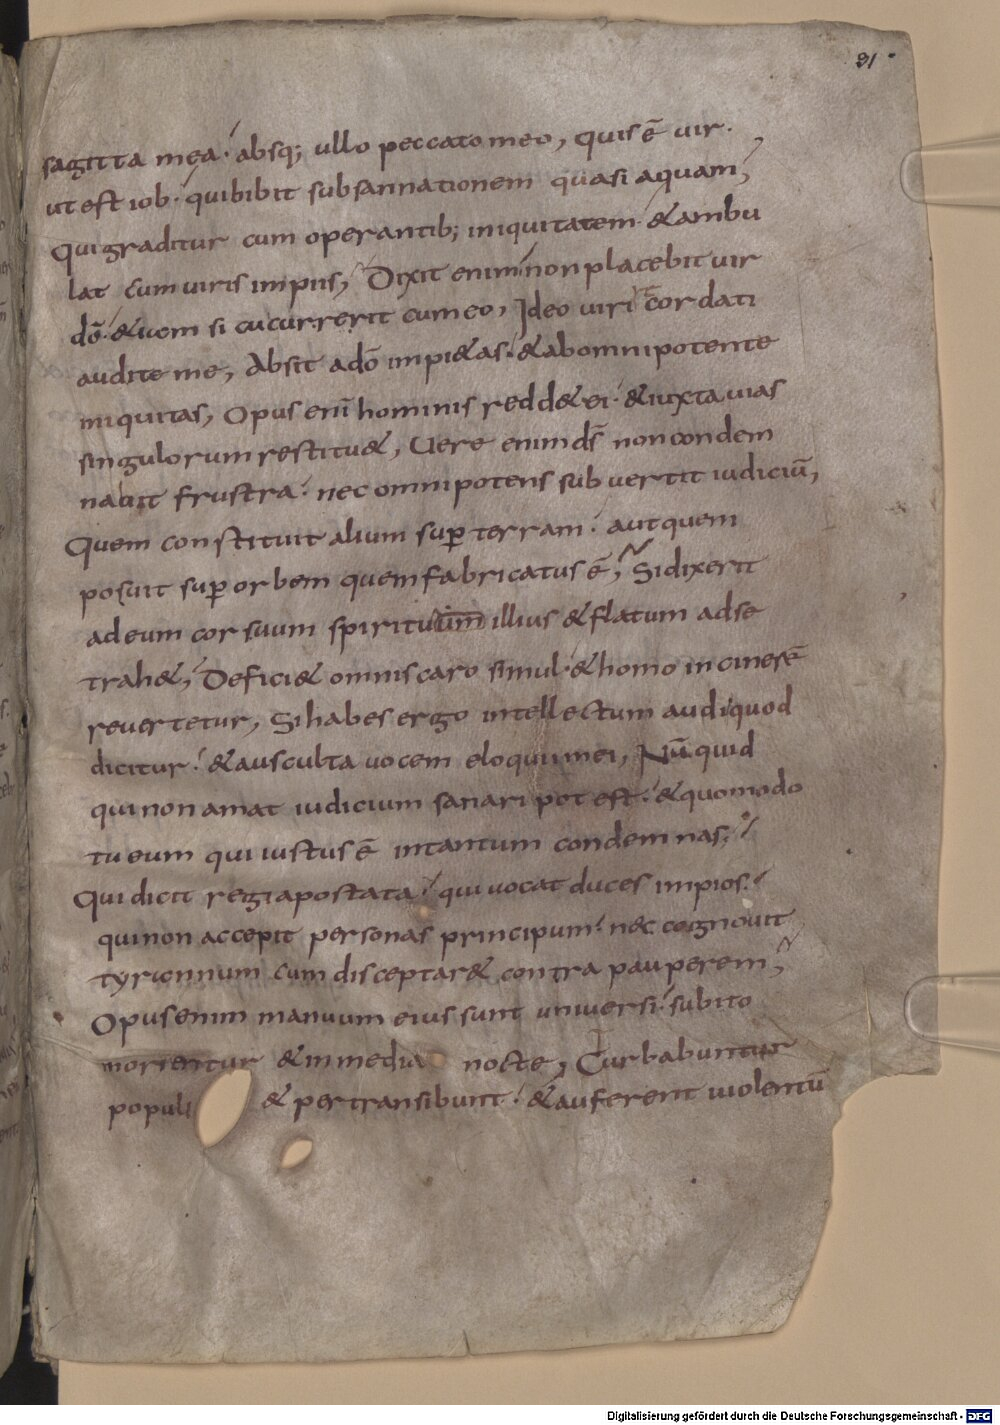 31
sagitta mea. absq; ullo peccato meo, quis ē uir.
ut est iob. qui bibit subsannationem quasi aquam,
Qui graditur cum operantib; iniquitatem. & ambu
lat cum uiris impiis, Dixit enim non placebit uir
dō. & iem si cucurrerit cum eo, Ideo uiri cordati
audite me, Absit a dō impi&as. & ab omnipotente
iniquitas, Opus enī hominis redd& ei. & iuxta uias
singulorum restitu&, Uere enim ds̄ non condem
nabit frustra. nec omnipotens subuertit iudiciū,
Quem constituit alium sup̄ terram. aut quem
posuit sup̄ orbem quem fabricatus ē, Si dixerit
ad eum cor suum spirituum illius & flatum ad se
trah&, Defici& omnis caro simul. & homo in cinerē
reuertetur, Si habes ergo intellectum audi quod
dicitur. & ausculta uocem eloquii mei, Nūquid
qui non amat iudicium sanari potest. & quomodo
tu eum qui iustus ē intantum condemnas,
Qui dicit regi apostata. qui uocat duces impios.
qui non accepit personas principum. nec cognouit
tyrionnum cum disceptar& contra pauperem,
Opus enim manuum eius sunt uniuersi. subito
morientur & in media nocte, Curbabuntur
populi & pertransibunt. & auferent uiolentū
Digitalisierung gefördert durch die Deutsche Forschungsgemeinschaft - DFG